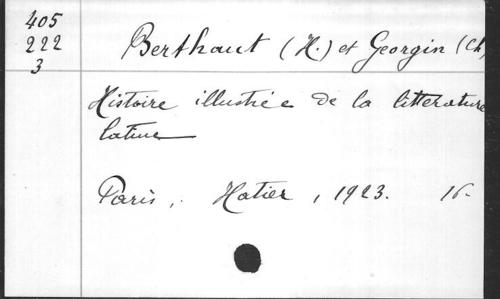 405
222
3
Berthaut (H.) et Georgin (Ch
Histoire illustrée de la litterature
latine
Paris, Hatier, 1923. 16-